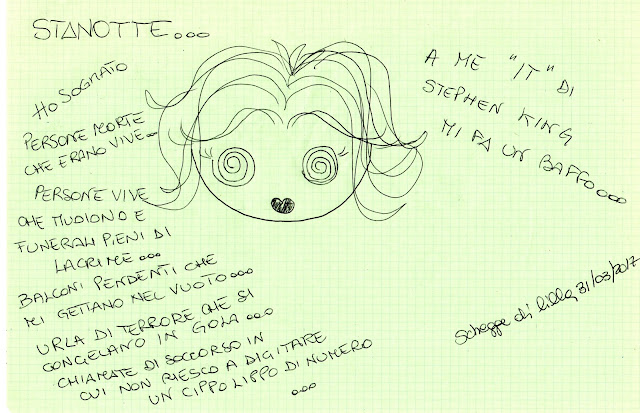 STANOTTE...
HO SOGNATO
PERSONE MORTE
CHE ERANO VIVE...
PERSONE VIVE
CHE MUOIONO E
FUNERALI PIENI DI
LACRIME...
BALCONI PENDENTI CHE
MI GETTANO NEL VUOTO...
URLA DI TERRORE CHE SI
CONGELANO IN GOLA...
CHIAMATE DI SOCCORSO IN
CUI NON RIESCO A DIGITARE
UN CIPPO LIPPO DI NUMERO
...
A ME "IT" DI
STEPHEN KING
MI FA UN BAFFO...
Schegge di lilla 31/03/2017